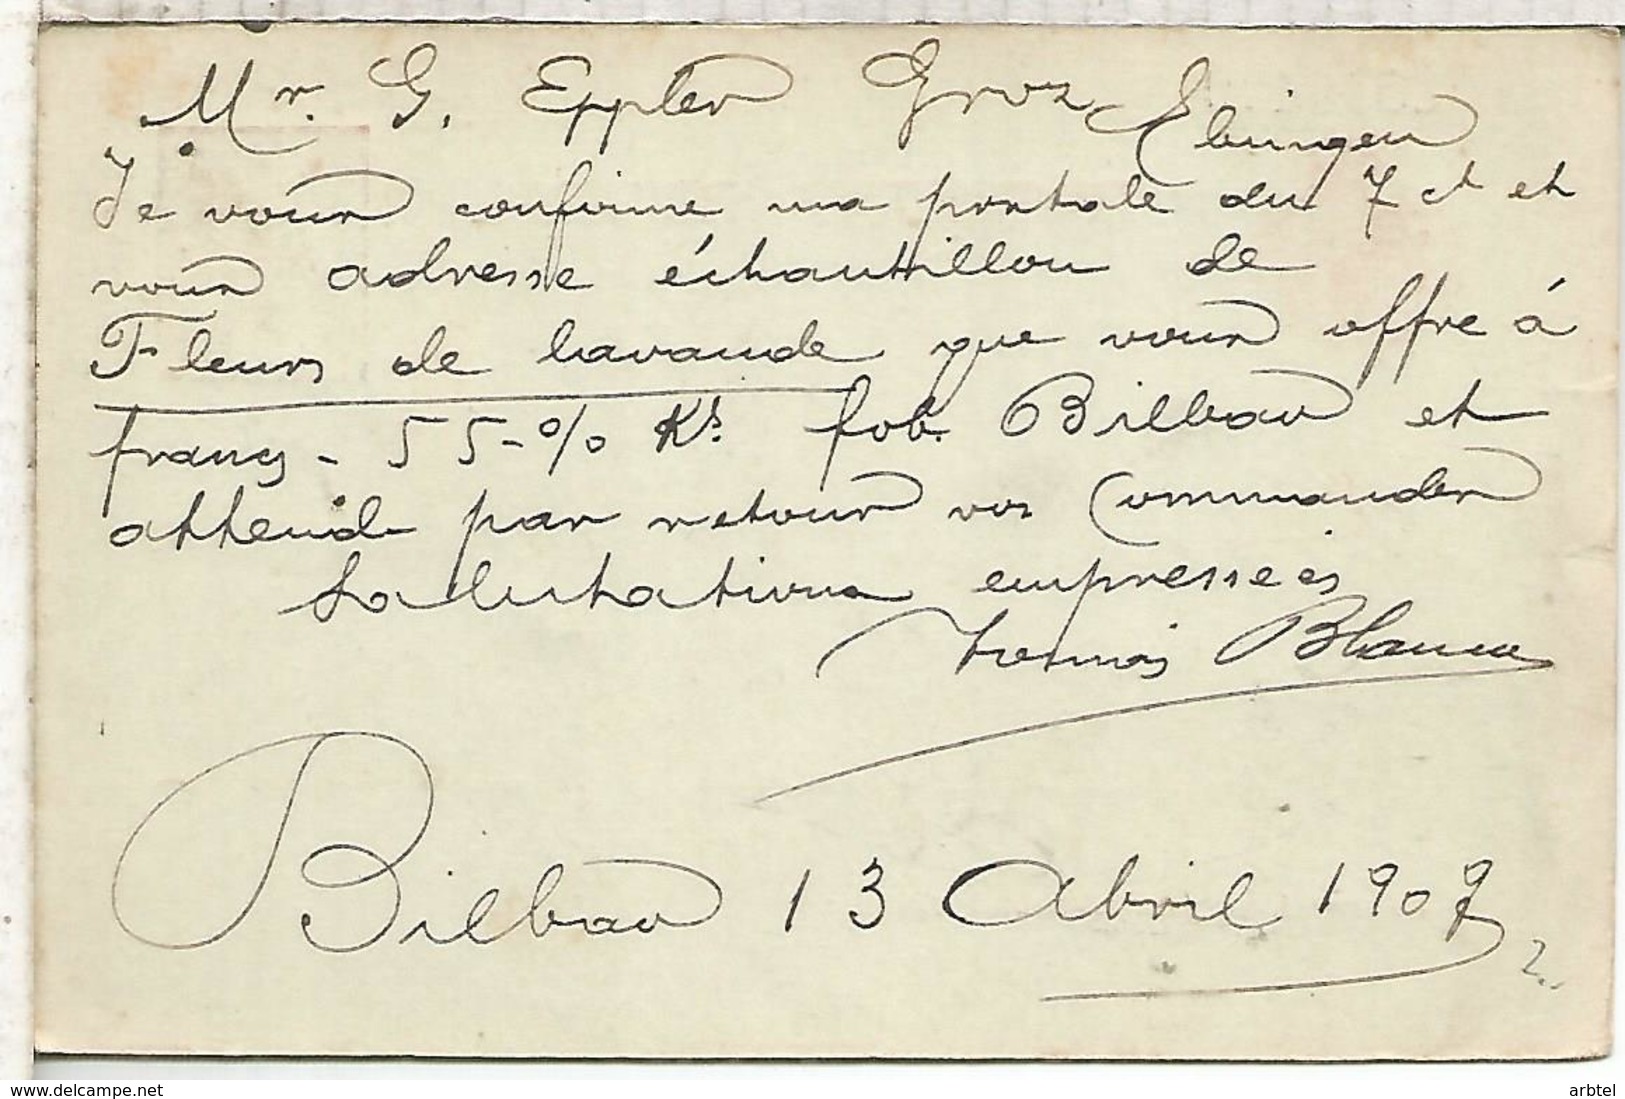 Mr. G. Eppler Groz Ebingen
Je vous confirme ma postale du 7 ct et
vous adresse échantillon de
Fleurs de lavande que vous offre à
francs - 55-%  Ks. fob. Bilbao et
attends par retour vos Commandes
Salutations empressées
Blanco
Bilbao 13 Abril 1909
arbtel